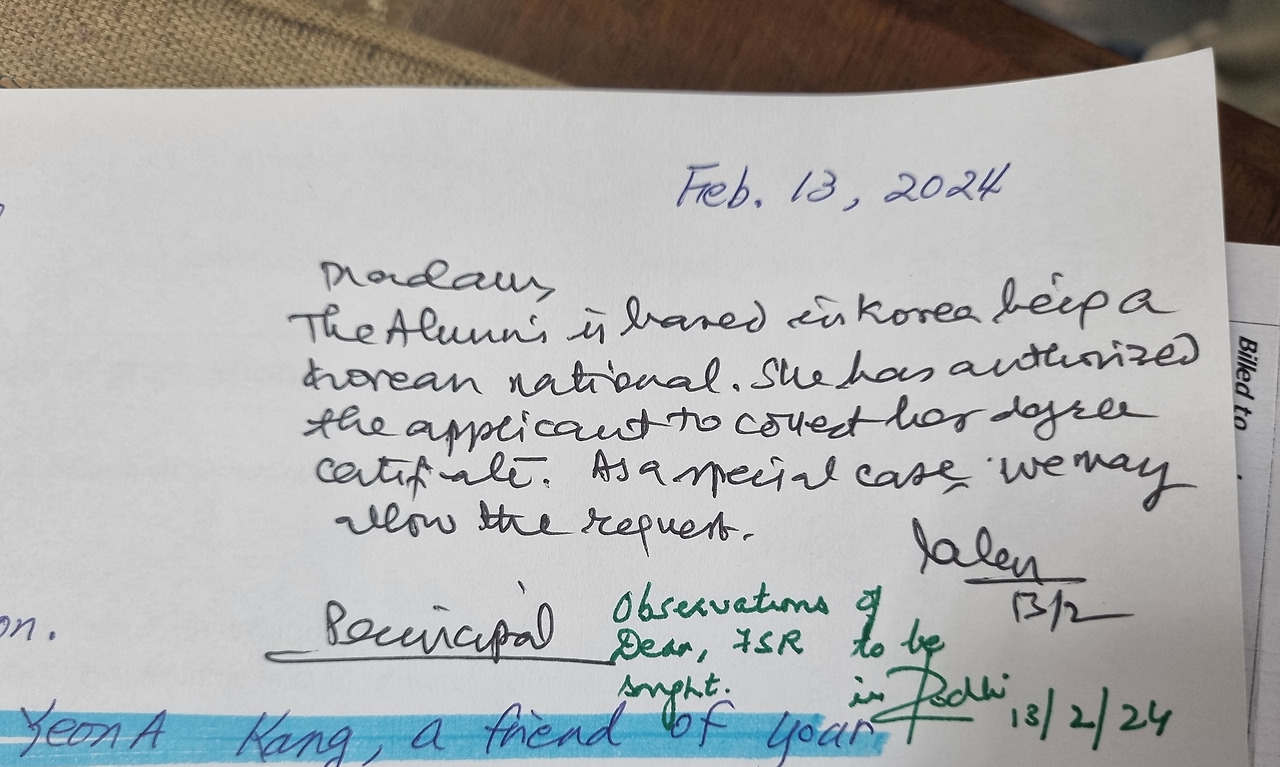 Feb. 13, 2024
Madam,
The Alumni is based in Korea being a
Korean national. She has authorized
the applicant to collect her degree
certificate. As a special case, we may
allow the request.
13/2
Principal
Observations of
Dean, FSR to be
sought.
13/2/24
on.
Yeon A Kang, a friend of year
Billed to